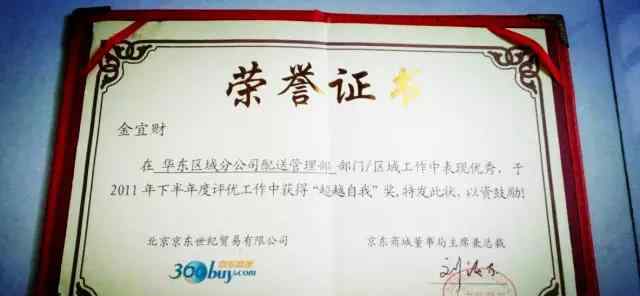 荣誉证书
金宜财
在 华东区域分公司配送管理部 部门/区域工作中表现优秀,于
2011年下半年度评优工作中获得“超越自我”奖,特发此状,以资鼓励!
北京京东世纪贸易有限公司
京东商城董事局主席兼总裁
京东商城
360buy.com